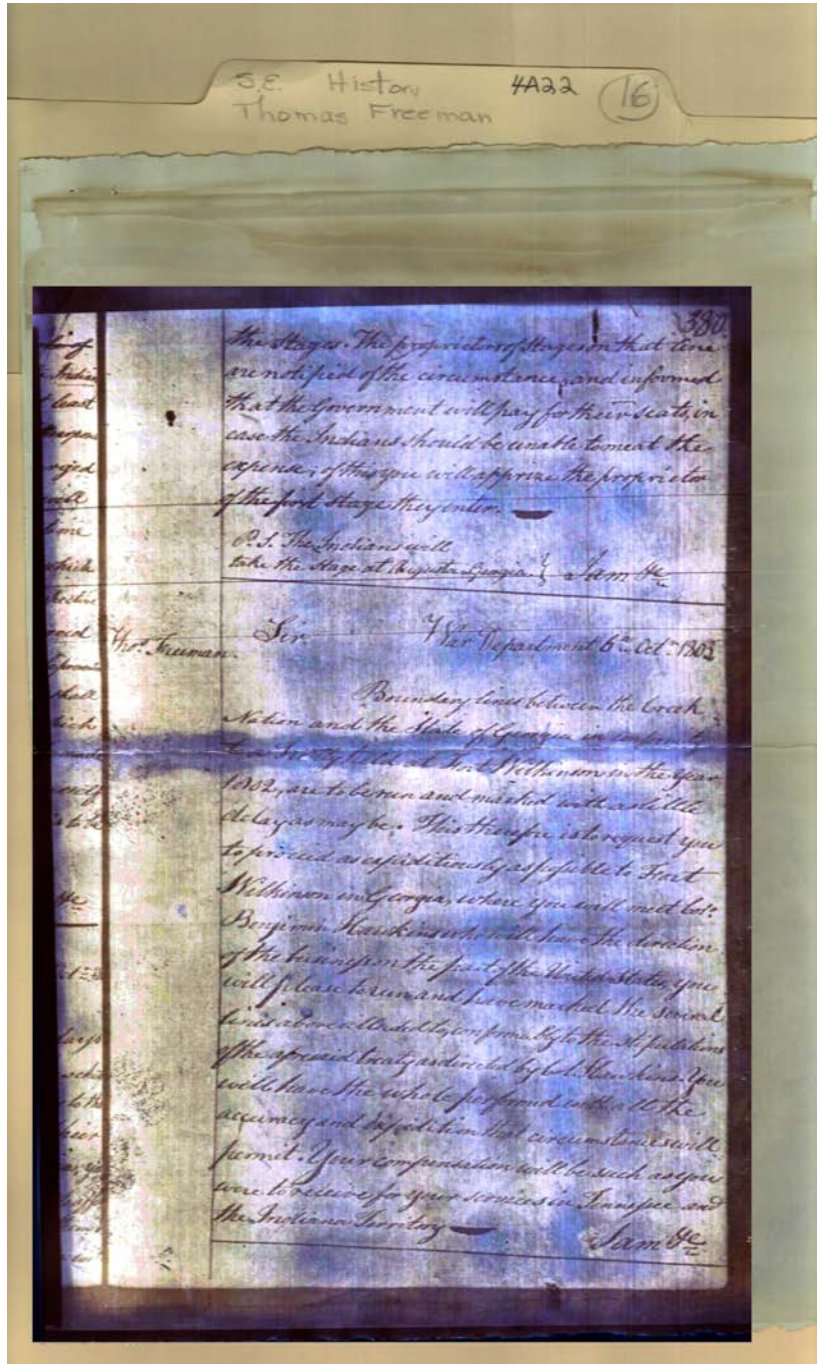 S.E. History 4A22 16
Thomas Freeman
380
the Stages. The proprietors of Stages on that line
are notified of the circumstance, and informed
that the Government will pay for their seats, in
case the Indians should be unable to meet the
expense; of this you will apprize the proprietor
of the first Stage they enter.
P.S. The Indians will
take the Stage at Augusta Georgia } I am &c
Thos. Freeman. Sir War Department 6th Octr. 1803
Boundary lines between the Creek
Nation and the State of Georgia in conformity
to a Treaty held at Fort Wilkinson in the year
1802, are to be run and marked with as little
delay as may be. This therefore is to request you
to proceed as expeditiously as possible to Fort
Wilkinson in Georgia, where you will meet Colo.
Benjamin Hawkins who will have the direction
of the business on the part of the United States, you
will please to run and have marked the several
lines above alluded to, conformably to the stipulations
of the aforesaid treaty as directed by Col. Hawkins. You
will have the whole performed with all the
accuracy and expedition that circumstances will
permit. Your compensation will be such as you
were to receive for your services in Tennessee and
the Indiana Territory
I am &c